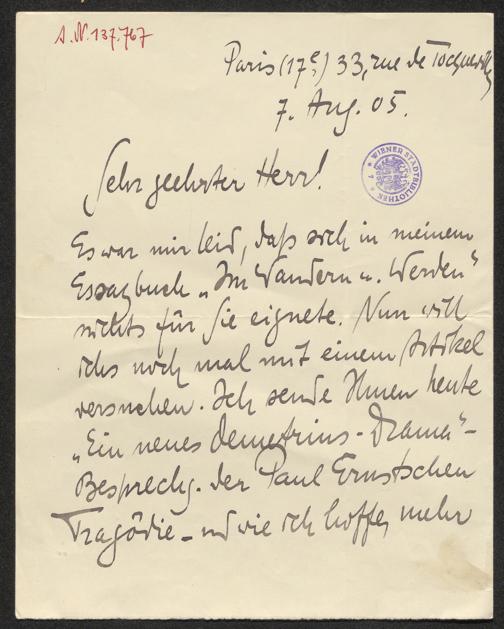 A.N. 137.767
Paris (17e) 33, rue de Tocqueville
7. Aug. 05.
WIENER STADTBIBLIOTHEK
Sehr geehrter Herr!
Es war mir leid, daß sich in meinem
Essaybuch „Im Wandern u. Werden"
nichts für Sie eignete. Nun will
ichs noch mal mit einem Artikel
versuchen. Ich sende Ihnen heute
„Ein neues Demetrius-Drama" -
Besprechg. der Paul Ernstschen
Tragödie - und wie ich hoffe, mehr